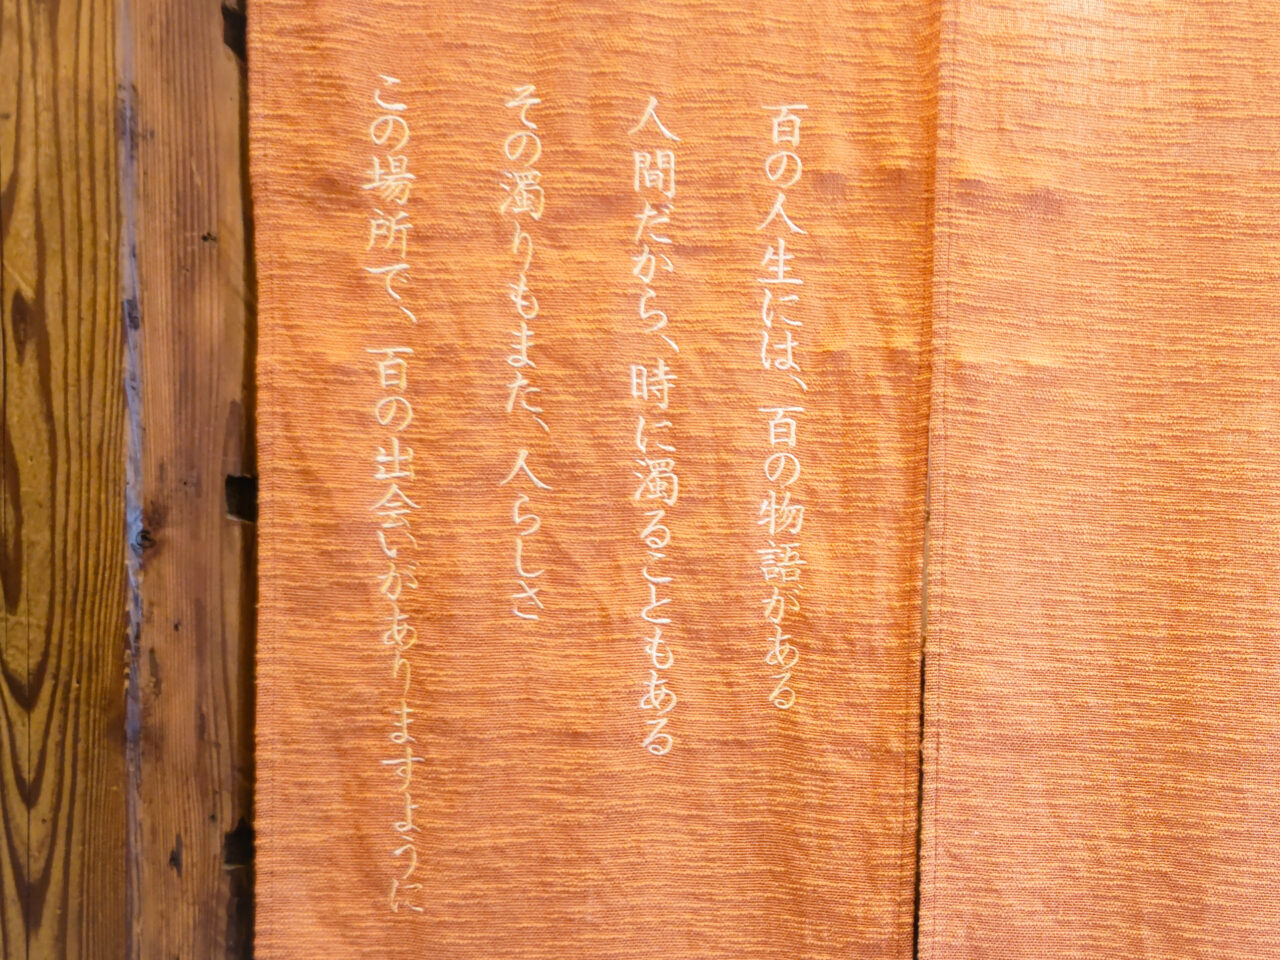 百の人生には、百の物語がある
人間だから、時に濁ることもある
その濁りもまた、人らしさ
この場所で、百の出会いがありますように